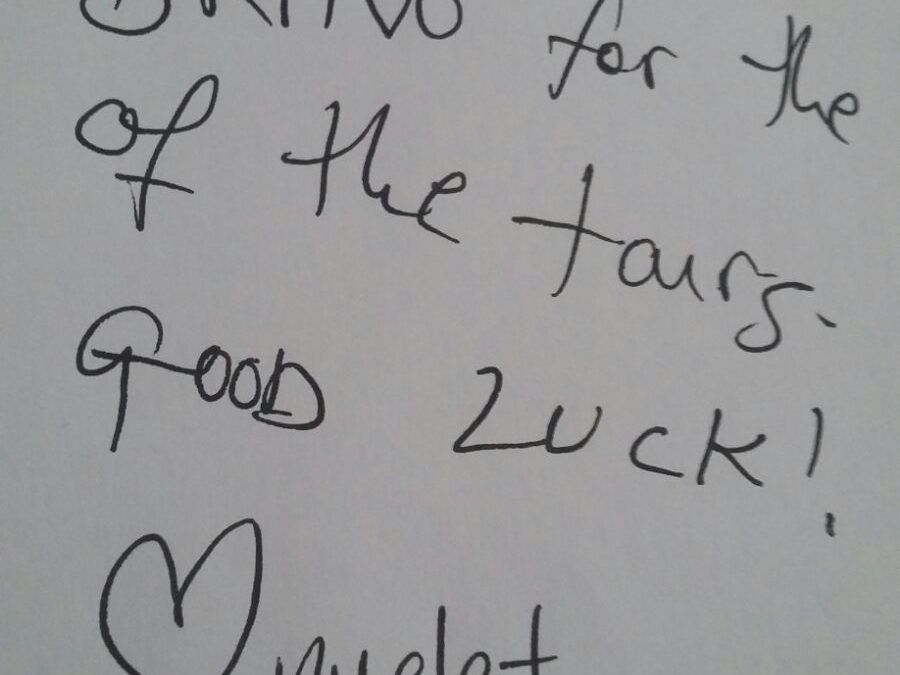 BRAVO for the
of the tours.
GOOD LUCK!